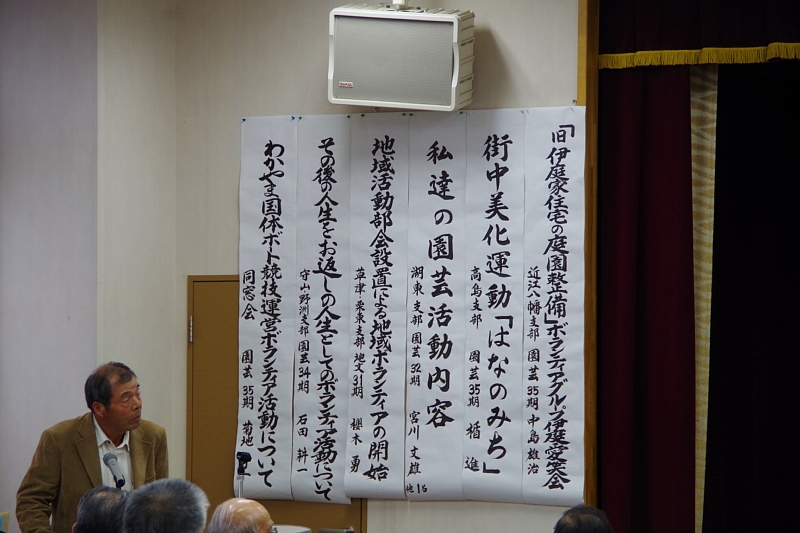 「旧伊庭家住宅の庭園整備」ボランティアグループ伊庭愛笑会
近江八幡支部 園芸35期 中島雄治
街中美化運動「はなのみち」
高島支部 園芸35期 楯 進
私達の園芸活動内容
湖東支部 園芸32期 宮川丈雄
他1名
地域活動部会設置による地域ボランティアの開始
草津・栗東支部 地文31期 櫻木 勇
その後の人生をお返しの人生としてのボランティア活動について
守山野洲支部 園芸34期 石田 耕一
わかやま国体ボート競技運営ボランティア活動について
同窓会 園芸35期 菊地